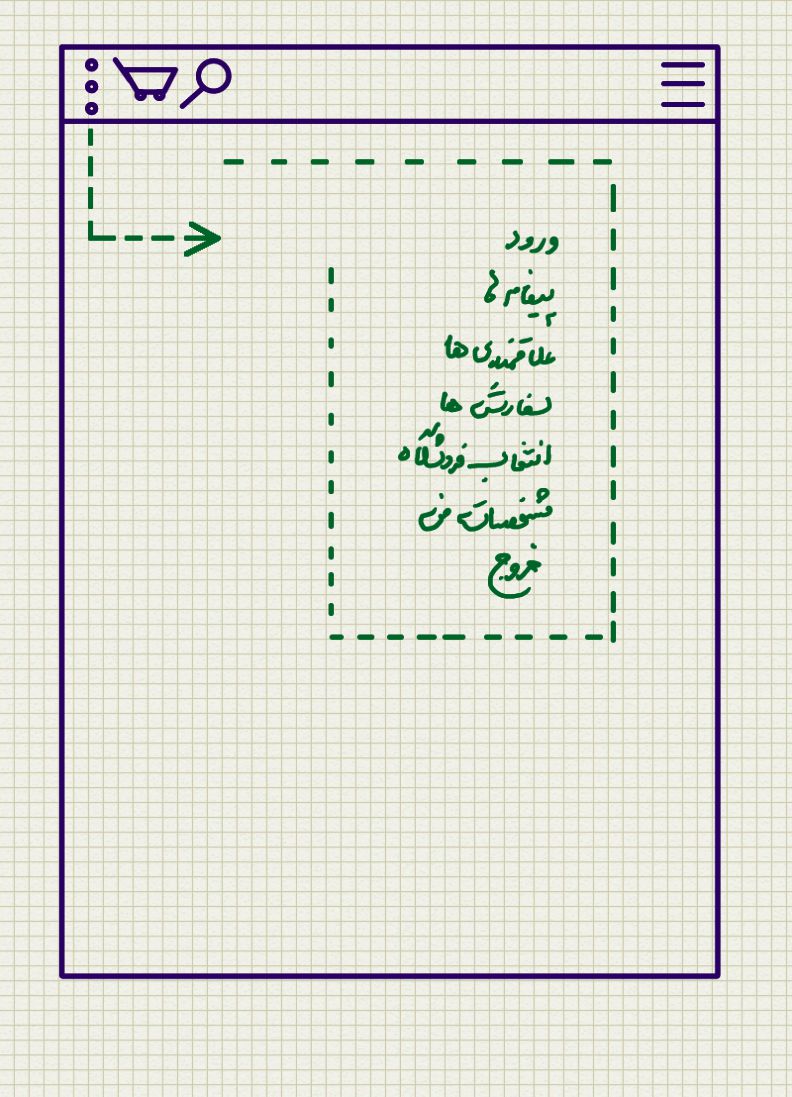 ورود
پیغام ها
علاقمندی ها
سفارش ها
انتخاب فروشگاه
مشخصات من
خروج